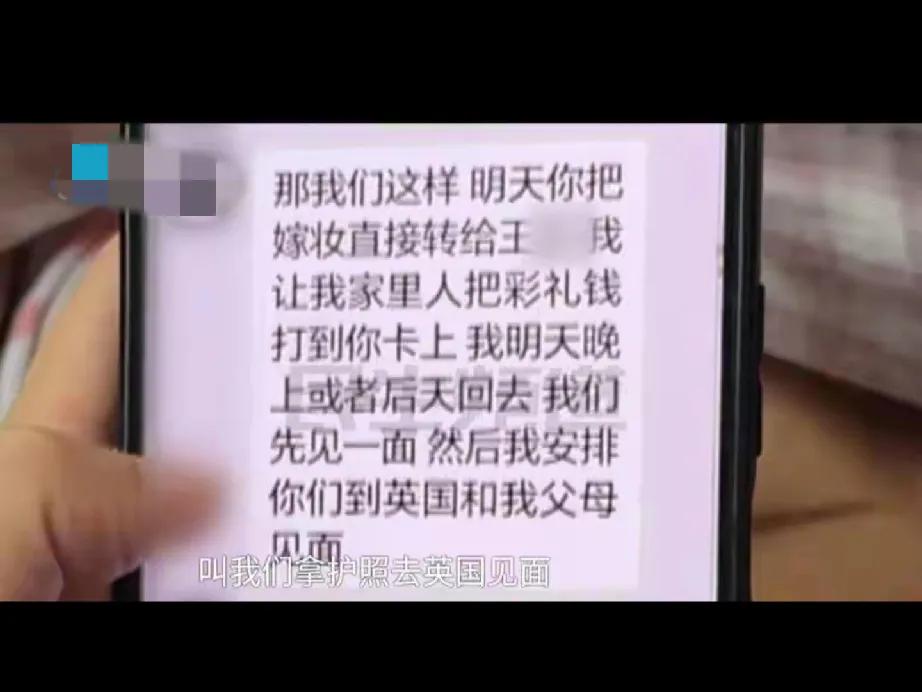 那我们这样 明天你把
嫁妆直接转给王 我
让我家里人把彩礼钱
打到你卡上 我明天晚
上或者后天回去 我们
先见一面 然后我安排
你们到英国和我父母
见面
叫我们拿护照去英国见面